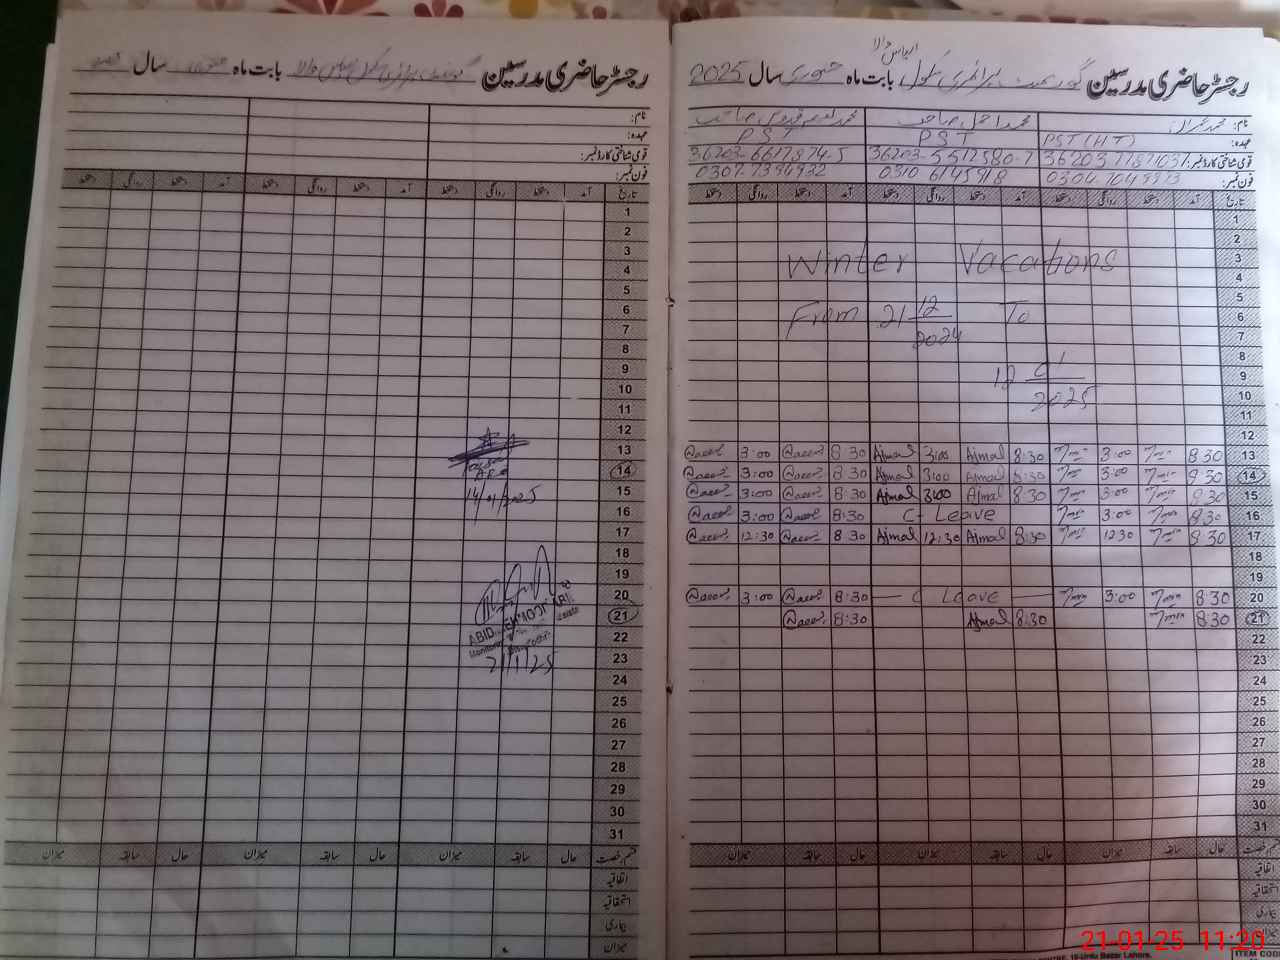 رجسٹر حاضری مدرسین گورنمنٹ پرائمری سکول الیاس والا بابت ماہ جنوری سال 2025
نام: محمد عمران محمد اجمل صاحب
عہدہ: PST (HT) PST PST
قومی شناختی کارڈ نمبر: 36203 36203-5512580-7 36203-6617874-5
فون نمبر: 0304 7049993 0310 6145918 0307-7394932
تاریخ آمد دستخط روانگی دستخط آمد دستخط روانگی دستخط آمد دستخط روانگی دستخط
1
2
3 Winter Vacations
4
5
6 From 21 12 To
7 2024
8 01
9
10 2025
11
12
13 8:30 3:00 8:30 Ajmal 3:00 Ajmal 8:30 3:00
14 8:30 3:00 8:30 Ajmal 3:00 Ajmal 8:30 3:00
15 8:30 3:00 8:30 Ajmal 3:00 Ajmal 8:30 3:00
16 8:30 3:00 C-Leave 8:30 3:00
17 8:30 12:30 8:30 Ajmal 12:30 Ajmal 8:30 12:30
18
19
20 8:30 3:00 C Leave 8:30 3:00
21 8:30 8:30 Ajmal 8:30
22
23
24
25
26
27
28
29
30
31
قسم رخصت حال سابقہ میزان حال سابقہ میزان حال سابقہ میزان
اتفاقیہ
استحقاقیہ
بیماری
میزان
21-01-25 11:20
15-Urdu Bazar Lahore.
ITEM COD
رجسٹر حاضری مدرسین گورنمنٹ پرائمری سکول الیاس والا بابت ماہ جنوری سال
نام:
عہدہ:
قومی شناختی کارڈ نمبر:
فون نمبر:
تاریخ آمد دستخط روانگی دستخط آمد دستخط روانگی دستخط آمد دستخط روانگی دستخط
1
2
3
4
5
6
7
8
9
10
11
12
13
14
15 14/01/2025
16
17
18
19
20
21
22 ABID
23 21/1/25
24
25
26
27
28
29
30
31
قسم رخصت حال سابقہ میزان حال سابقہ میزان حال سابقہ میزان
اتفاقیہ
استحقاقیہ
بیماری
میزان